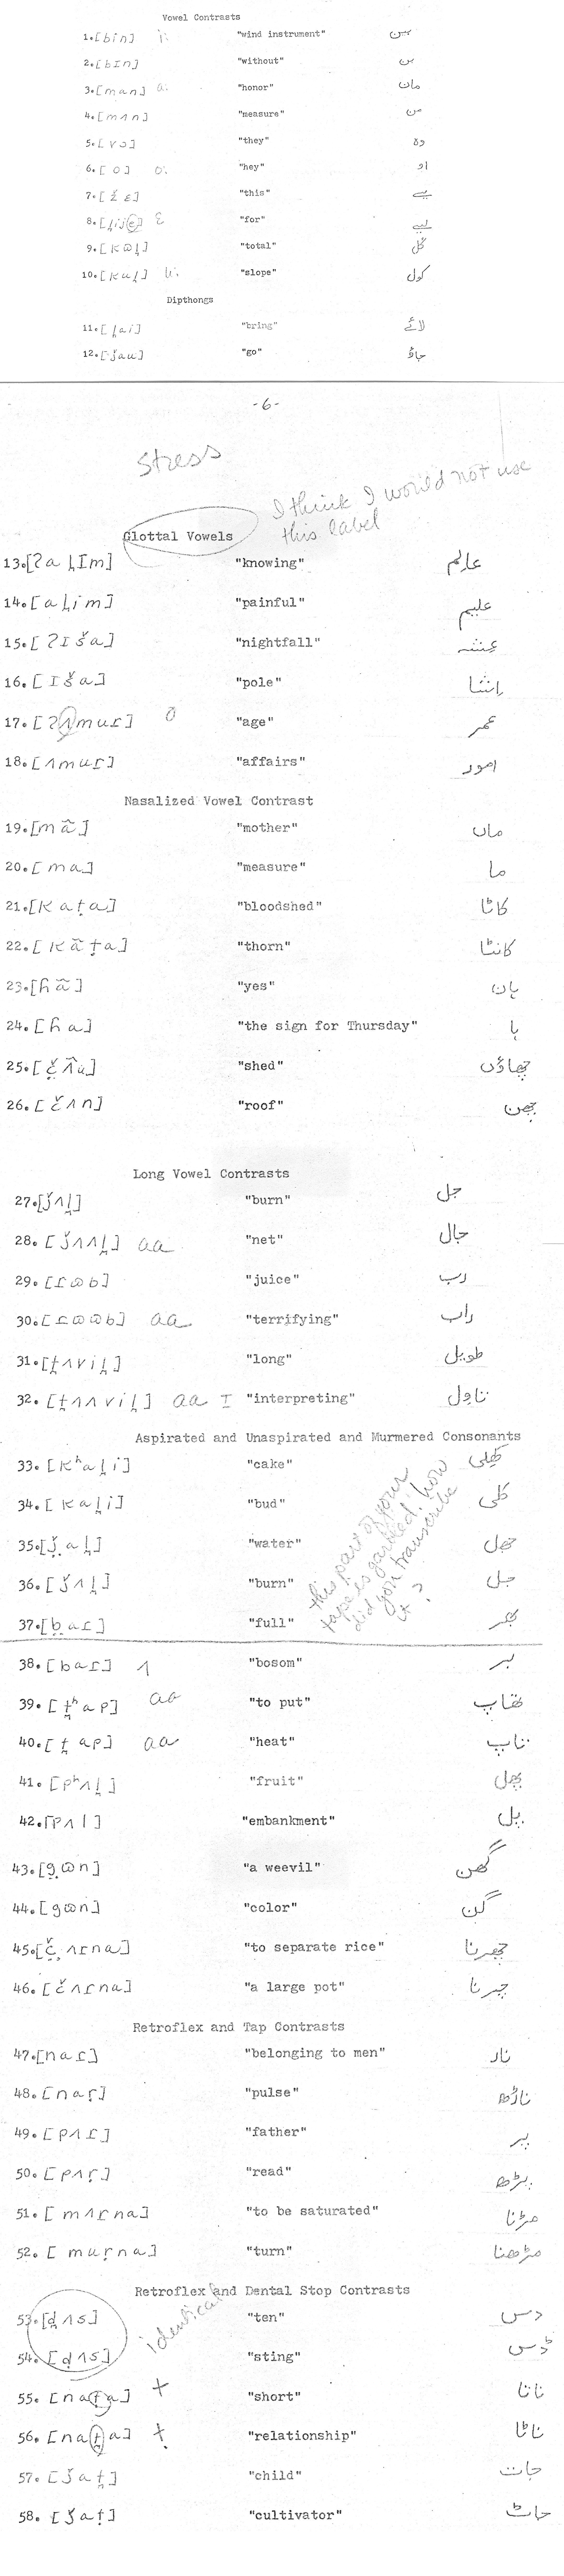 Vowel Contrasts
1. [bin] i: "wind instrument" بین
2. [bIn] "without" بن
3. [man] a: "honor" مان
4. [mʌn] "measure" من
5. [vɔ] "they" وہ
6. [o] o: "hey" او
7. [ž ɛ] "this" یے
8. [l̪ije] ɛ "for" لیے
9. [kɷl̪] "total" کُل
10. [kul̪] u: "slope" کول
Dipthongs
11. [l̪ai] "bring" لائے
12. [ǰau] "go" جاؤ
-6-
Stress
I think I would not use
this label
Glottal Vowels
13. [ʔa l̪Im] "knowing" عالِم
14. [al̪im] "painful" علیم
15. [ʔI š a] "nightfall" عِشہ
16. [I š a] "pole" اِشا
17. [ʔʌmuɾ] o "age" عمر
18. [ʌmuɾ] "affairs" امور
Nasalized Vowel Contrast
19. [m ã] "mother" ماں
20. [ma] "measure" ما
21. [kaṭa] "bloodshed" کاٹا
22. [kãṭa] "thorn" کانٹا
23. [hã] "yes" ہان
24. [ha] "the sign for Thursday" ہا
25. [č̤ʌ̃u] "shed" چھاؤں
26. [čʌn] "roof" چھن
Long Vowel Contrasts
27. [ǰʌl̪] "burn" جل
28. [ǰʌʌl̪] aa "net" جال
29. [ɾɷb] "juice" رب
30. [ɾɷɷb] aa "terrifying" راب
31. [t̪ʌvil̪] "long" طویل
32. [t̪ʌʌvil̪] aa I "interpreting" تاوِل
Aspirated and Unaspirated and Murmered Consonants
this part of your
tape is garbled; how
did you transcribe
it?
33. [kʰal̪i] "cake" کھلی
34. [kal̪i] "bud" کلی
35. [ǰ̤al̪] "water" جھل
36. [ǰʌl̪] "burn" جل
37. [b̤aɾ] "full" بھر
38. [baɾ] ʌ "bosom" بر
39. [t̪ʰap] aa "to put" تھاپ
40. [t̪ap] aa "heat" تاپ
41. [pʰʌl̪] "fruit" پھل
42. [pʌl] "embankment" پل
43. [g̤ɷn] "a weevil" گھن
44. [gɷn] "color" گن
45. [č̤ʌɾna] "to separate rice" چھرنا
46. [čʌɾna] "a large pot" چرنا
Retroflex and Tap Contrasts
47. [naɾ] "belonging to men" نار
48. [naɽ] "pulse" ناڑھ
49. [pʌɾ] "father" پر
50. [pʌɽ] "read" پڑھ
51. [mʌɾna] "to be saturated" مڑنا
52. [muɽna] "turn" مڑھنا
Retroflex and Dental Stop Contrasts
identical
53. [d̪ʌs] "ten" دس
54. [ḍʌs] "sting" ڈس
55. [naṭa] t "short" ناتا
56. [nat̪a] ṭ "relationship" ناٹا
57. [ǰat̪] "child" جات
58. [ǰaṭ] "cultivator" جاٹ